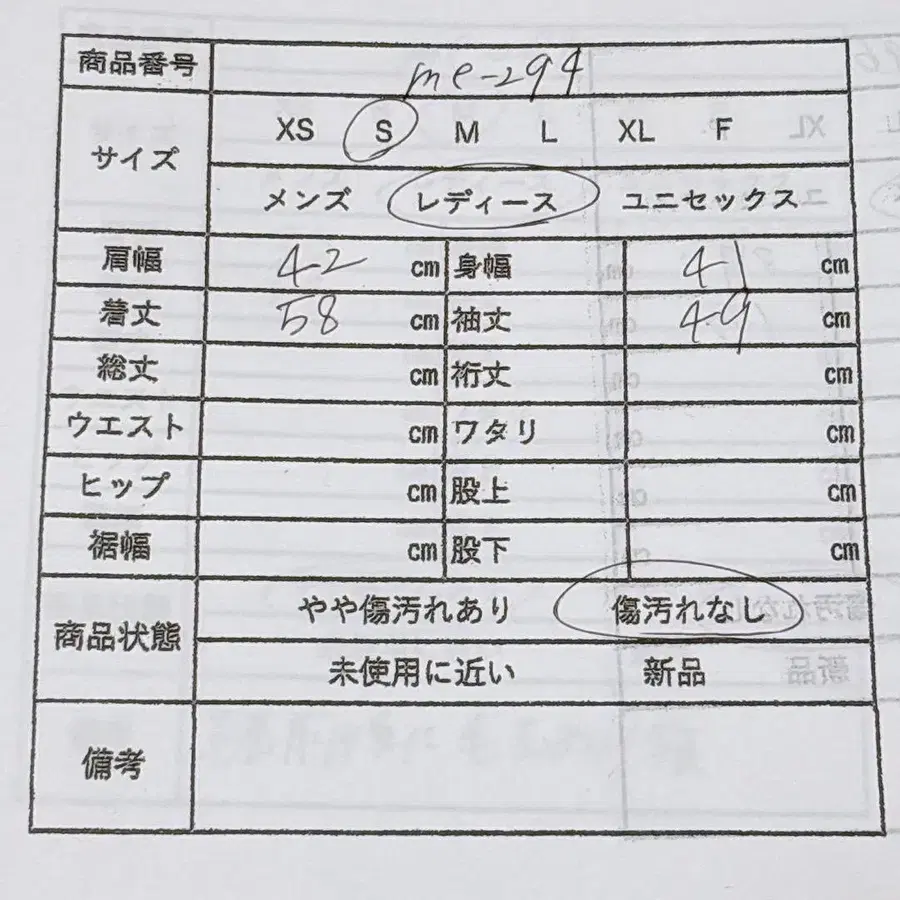 商品番号 me-294
サイズ XS S M L XL F
メンズ レディース ユニセックス
肩幅 42 cm 身幅 41 cm
着丈 58 cm 袖丈 49 cm
総丈 cm 裄丈 cm
ウエスト cm ワタリ cm
ヒップ cm 股上 cm
裾幅 cm 股下 cm
商品状態 やや傷汚れあり 傷汚れなし
未使用に近い 新品
備考